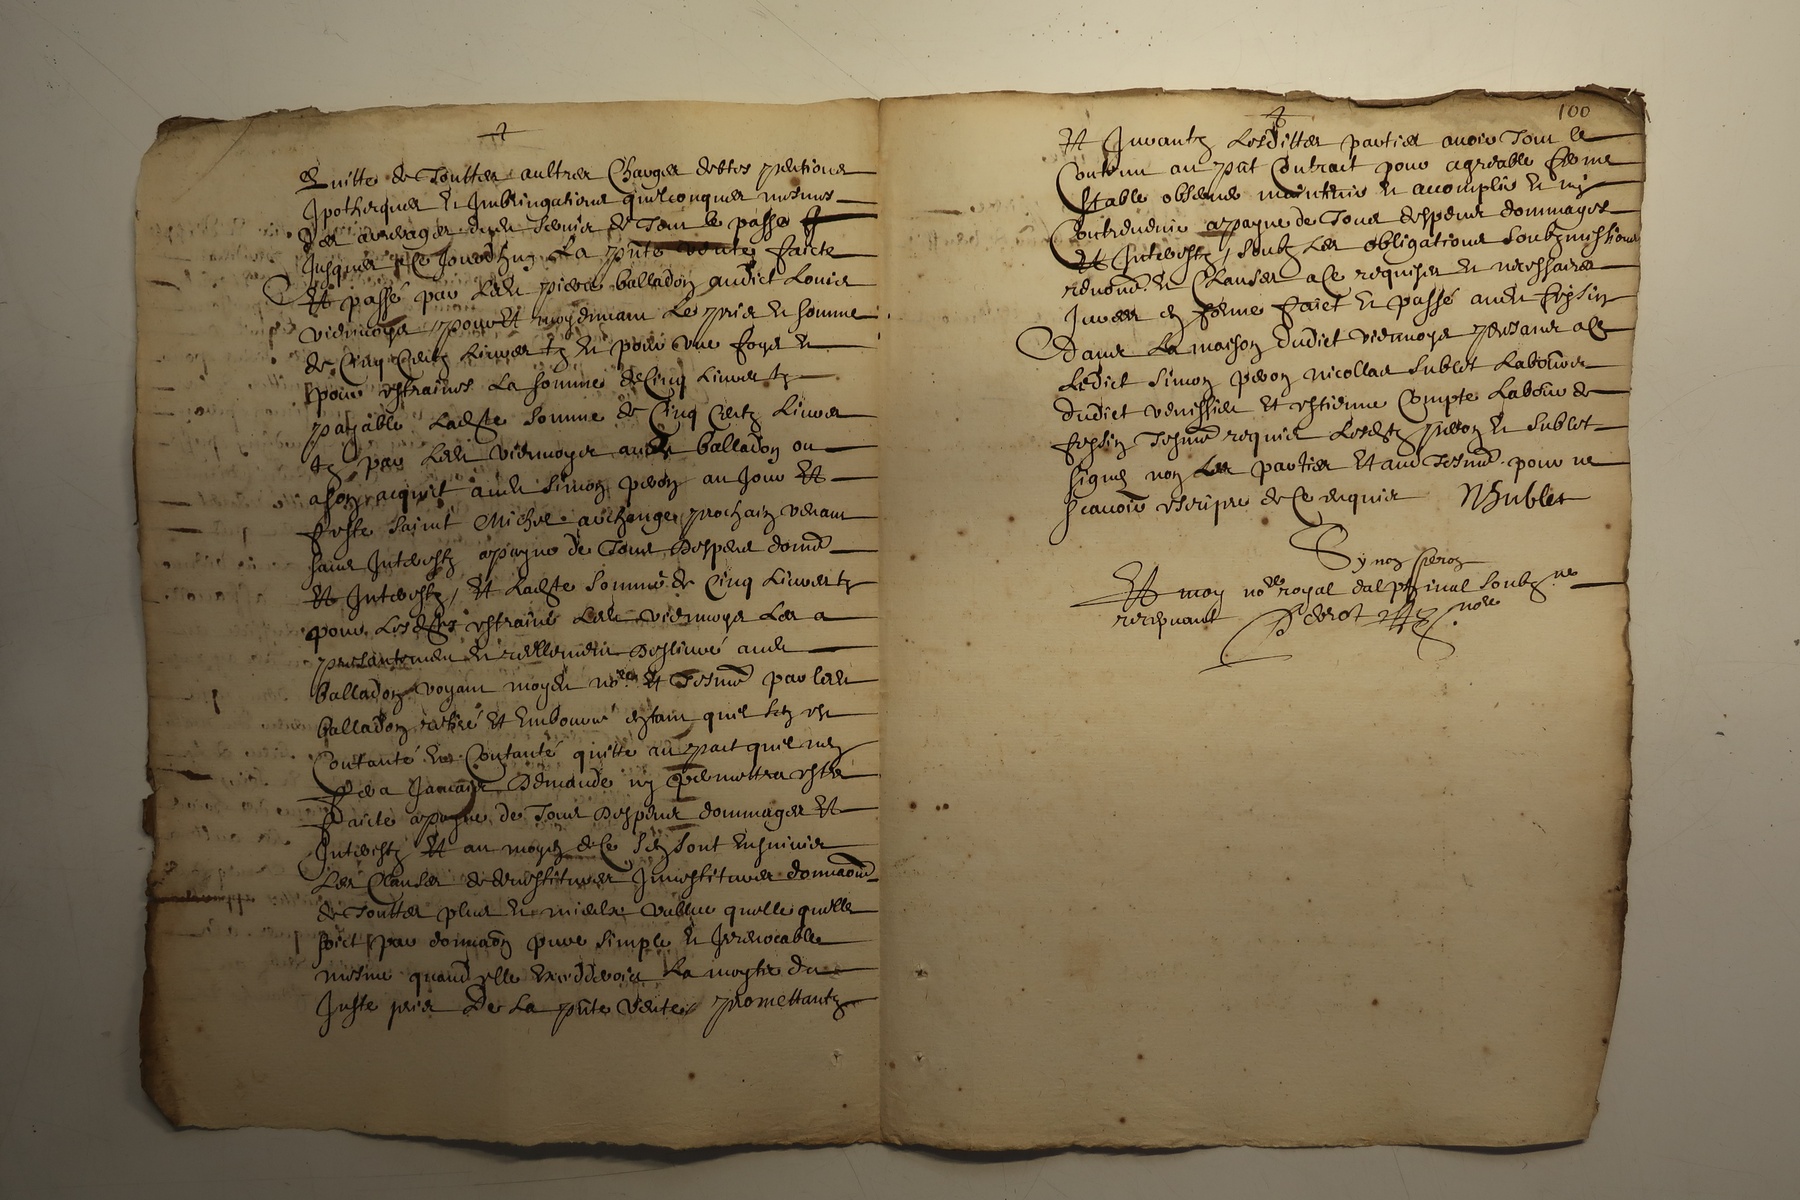 quitte de Touttes aultres Charges debtes pentions
Ipothecques et Imbringations quelconques mesmes
des arrerages dudit servis de Tout le passe
Jusques a ce Jourdhuy La pnte vente faicte
Et passé par ledit pierre balladon audict Louis
viermoyes pour et moyennant Le pris et somme
de Cinq Centz Livres tz et pour une foys et
pour estraines La somme de Cinq Livres tz
payable Ladicte somme de Cinq Centz Livres
tz par Ledit viermoyes audit balladon ou
a son acquit audit Simon peron au Jour Et
feste Saint Michel archange prochain venant
sans Interestz a payne de Tous Despens domm
Et Interestz / Et Ladicte somme de Cinq Livres tz
pour Lesdictes estraines Ledit viermoyes Les a
presentement et reellement Deslivré audit
balladon voyant moydit nore Et Tesms par ledit
balladon retiré Et Emboursé en tant quil sen est
Contanté Et Contanté quitte au pact quil nen
sera Jamais Demande ny permettra estre
faicte a payne de Tous Despens dommages Et
Interestz Et au moyen de ce sen sont Ensuivies
Les Clauses de devestitures Investitures donnaons
de Touttes plus et mieulx vallue quelle quelle
soict par donnaon pure simple et Irrevocable
mesme quand elle excedderoit La moytie du
Juste pris De La pnte vente / promettantz
100
Et Jurantz Lesdittes parties avoir Tout le
Contenu au pnt Contract pour agreable ferme
stable observer maintenir et accomplir Et ny
Contrevenir a payne de Tous despens dommages
Et Interestz / soubz Les obligations soubzmissions
renonns et Clauses a ce requises et necessaires
Inserees en forme faict et passé audit feysin
Dans La maison dudict viermoyes presans a ce
Ledict Simon peron nicollas Sublet Laboureur
dudict venissieu Et estienne Compte Laboureur de
feysin Tesms requis Lesdictz peron et Sublet
signes non Les parties Et aud Tesms pour ne
scavoir escripre de ce enquis NSublet
Symon peron
Et moy nore royal dalphinal soubzne
recepvant Perrot nore